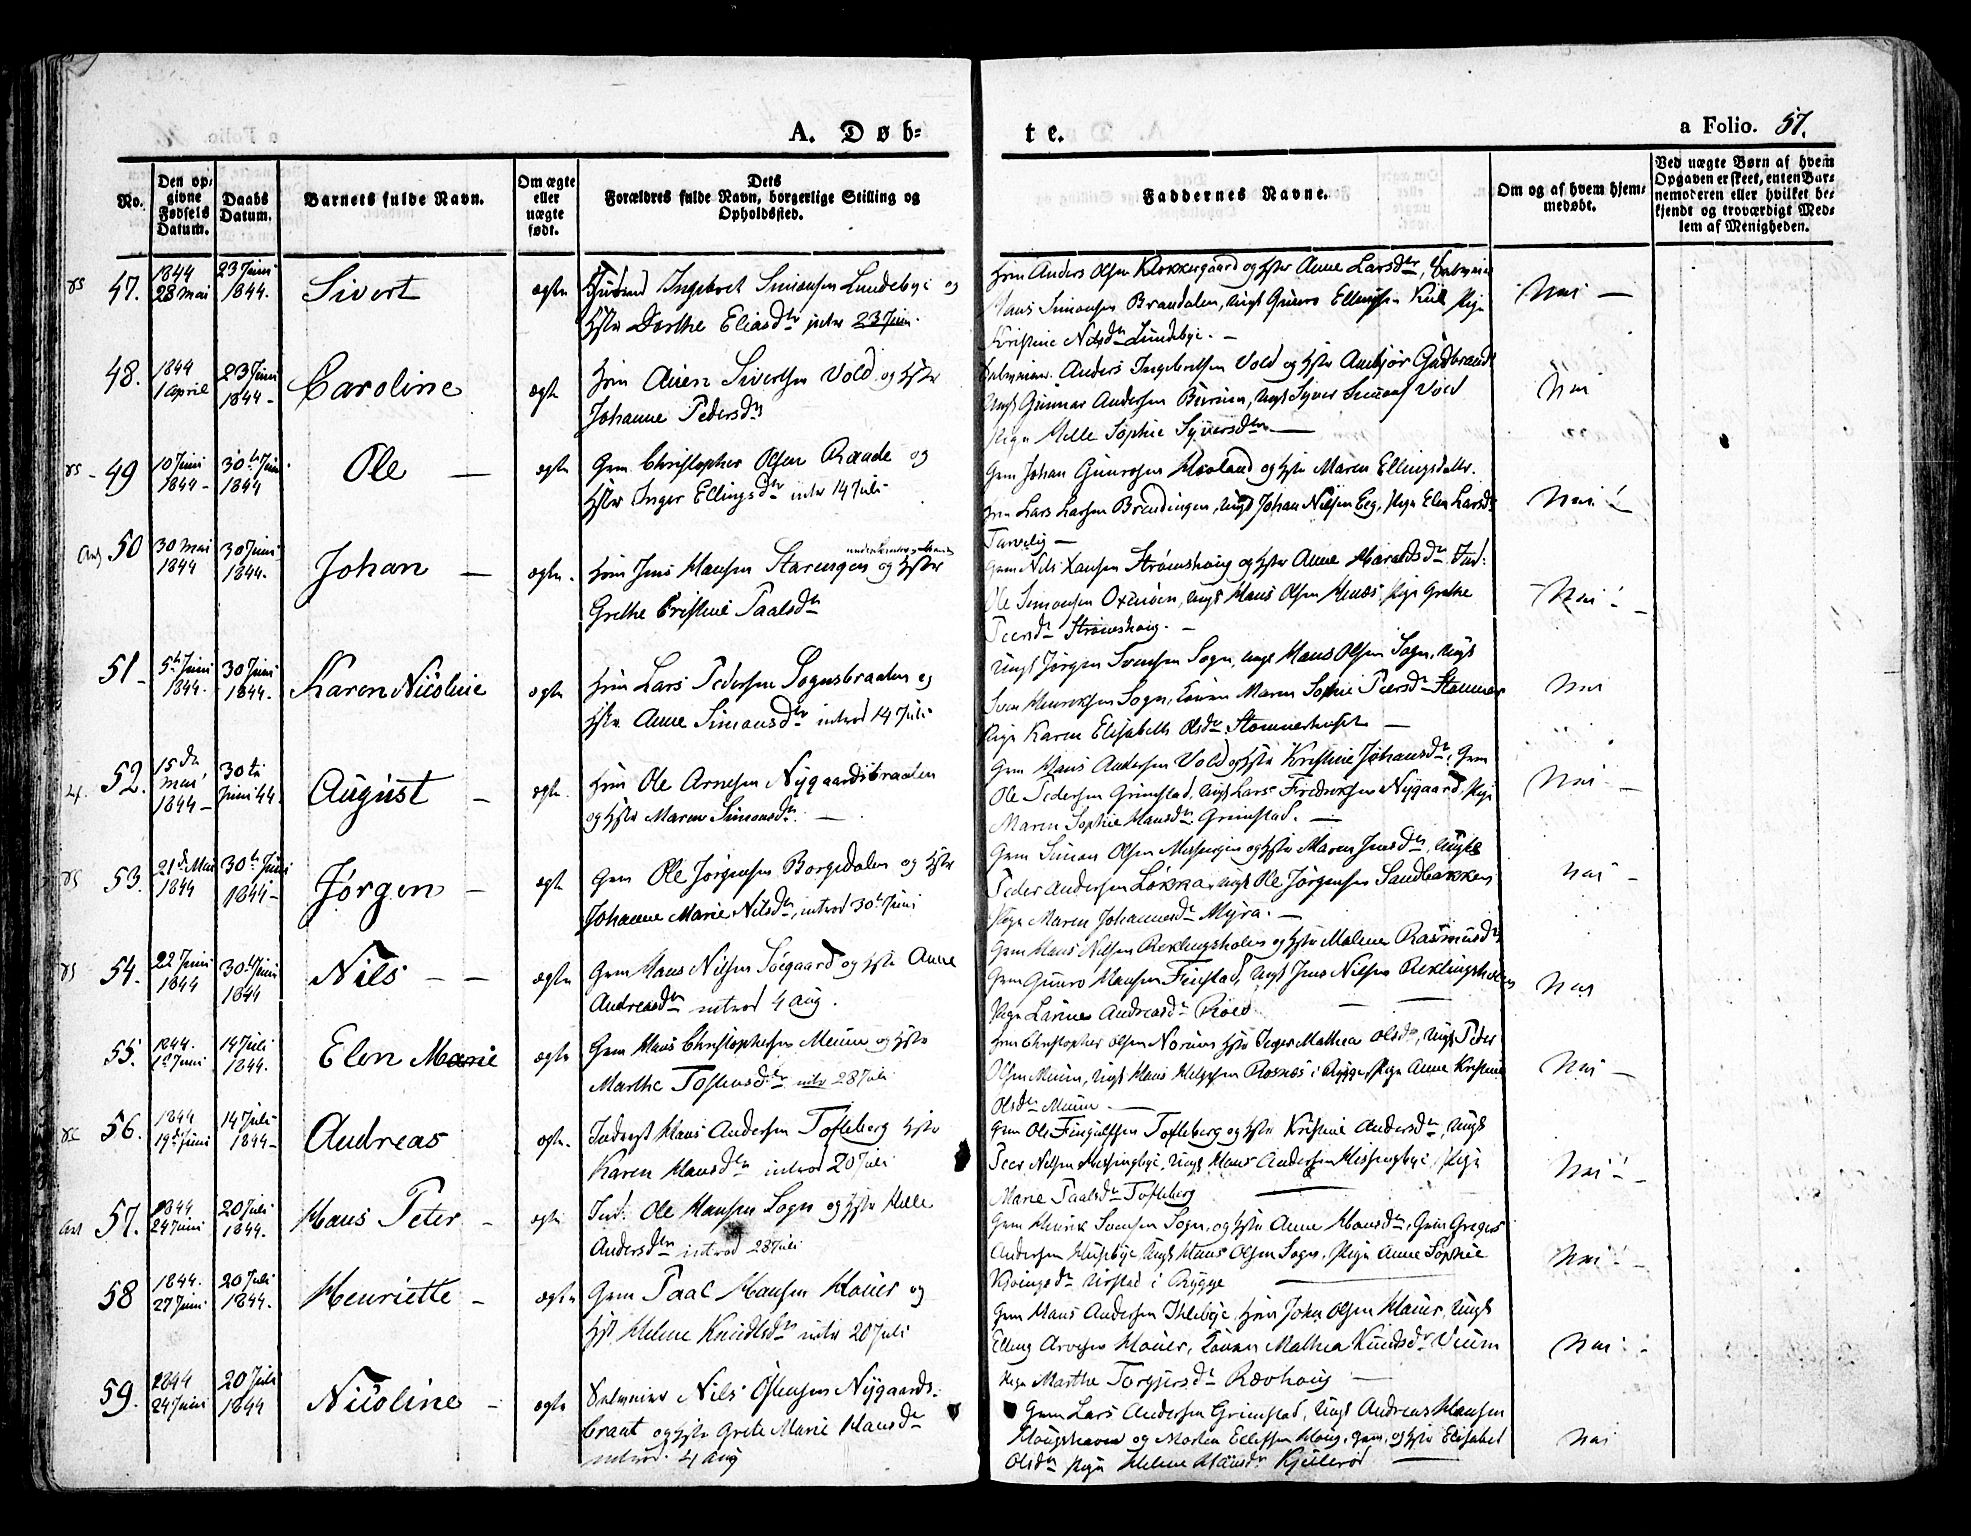 A. Døb-
te.
a Folio. 57.
No.
Den op-
givne
Fødsels
Datum.
Daabs
Datum.
Barnets fulde Navn.
Om ægte
eller
uægte
født.
Dets
Forældres fulde Navn, borgerlige Stilling og
Opholdssted.
Faddernes Navne.
Om og af hvem hjem-
medøbt.
Ved uægte Børn af hvem
Opgaven er skeet, enten Bar-
nemoderen eller hvilket be-
kjendt og troværdigt Med-
lem af Menigheden.
47.
1844
28 mai
23 Juni
1844.
Sivert
ægte
Ingebret Simonsen Lundebye og
Hstr Dorthe Eliasdtr intr 23 Juni.
Hmd Anders Olsen Klokkergaard og Hstr Anne Larsdtr,
Hans Simonsen Brandalen, Ungk Gunro Ellingsen Kiil Pige
Kristine Nilsdtr Lundebye. —
Nei —
48.
1844
1 april
23 Juni
1844 -
Caroline
ægte
Hmd Auen Sivertsen Vold og Hstr
Johanne Pedersdtr
Anders Ingebretsen Vold og Hstr Ambjør Gudbrands
Ungk Gunnar Andersen Ungk Syver Vold
Pige Helle Sophie Syversdtr —
Nei
49
10 Juni
1844 -
30te Juni
1844
Ole —
ægte
Gm. Christopher Olsen Raade og
Hstr Inger Ellingsdtr intr 14 Juli
Gm Johan Gunrosen Hovland og Hstr Maren Ellingsdatter.
Hmd Lars Larsen Brendingen, Ungk Johan Nilsen Eeg, Pige Elen Larsdtr
Tarvelig —
Nei
50
30 mai
1844
30 Juni
1844.
Johan —
ægte.
Hmd Jens Hansen og Hstr
Grethe Cristine Paalsdtr
Gm Nils Hansen Strømshoug og Hstr Anne Haraldsdtr Ind:
Ole Simonsen Oxenøen, Ungk Hans Olsen Henæs, Pige Grethe
Peersdtr Strømshoug. —
Nei
51 -
5te Juni
1844.
30 Juni
1844.
Karen Nicoline
ægte
Hmd Lars Pedersen Sognsbraaten og
Hstr Anne Simonsdtr introd 14 Juli
Ungk Jørgen Svensen Sogn, Ungk Hans Olsen Sogn, Ungk
Sven Henriksen Sogn, Konen Maren Sophie Peersdtr Stommer
Pige Karen Elisabeth Olsdtr Stommerhuset —
Nei
52.
15de
mai
1844 -
30te
Juni 44.
August —
ægte.
Hmd Ole Arnesen Nygaardsbraaten
og Hstr Maren Simonsdtr. —
Gm Hans Andersen Vold og Hstr Kristine Johansdtr, Gm
Ole Pedersen Grimstad, Ungk Lars Fredriksen Nygaard, Pige
Maren Sophie Hansdtr Grimstad. —
Nei
53.
21de Mai
1844
30te Juni
1844 -
Jørgen —
ægte
Gm Ole Jørgensen Borgedalen og Hstr
Johanne Marie Nilsdtr, introd 30te Juni
Gm Simon Olsen Missingen og Hstr Maren Jensdtr, Ungk
Peder Andersen Løkka, Ungk Ole Jørgensen Sandbakken
Pige Maren Johannesdtr Myra. —
Nei -
54.
22 Juni
1844
30te Juni
1844
Nils — —
ægte
Gm Hans Nilsen Søegaard og Hstr Anne
Andreasdtr introd 4 aug.
Gm Hans Nilsen Reklingsholm og Hstr Malene Rasmusdtr
Gm Gunro Hansen Fuistad, Ungk Jens Nilsen Reklingsholm
Pige Larine Andreasdtr Roed
Nei
55.
1844.
Juni
14 Juli
1844.
Elen Marie
ægte
Gm Hans Christophersen Meum og Hstr
Marthe Tostensdtr intr 28 Juli
Hmd Christopher Olsen Norum Hstr Inger Mathea Olsdtr, Ungk Peder
Olsen Meum, Ungk Hans Helgesen Rosnes i Rygge, Pige Anne Kristine
Olsdtr Meum —
Nei —
56.
1844
19de Juni
14 Juli
1844 -
Andreas
ægte.
Inderst Hans Andersen Tofteberg Hstr
Karen Hansdtr introd 20 Juli
Gm Ole Fingalssen Tofteberg og Hstr Kristine Andersdtr, Ungk
Peer Nilsen Missingbye, Ungk Hans Andersen Missingbye, Pige
Marie Paalsdtr Tofteberg
Nei
57.
1844
24 Juni
20 Juli
1844.
Hans Peter -
ægte
Ind: Ole Hansen Sogn og Hstr Helle
Andersdtr introd 28 Juli
Gm Henrik Svensen Sogn, og Hstr Anne Hansdtr, Gm Gregers
Andersen Husebye Ungk Hans Olsen Sogn, Pige Anne Sophie
Virstad i Rygge
Nei
58
1844.
27 Juni
20 Juli
1844.
Henriette -
ægte
Gm Paal Hansen Houer og
Hst Helene Knudtsdtr intr 20 Juli
Gm Hans Andersen Iklebye, Hmd John Olsen Houer, Ungk
Elling Arvesen Houer, Konen Mathea Knudsdtr Veum
Pige Marthe Torgersdtr Rævhoug —
Nei
59.
1844
24 Juni
20 Juli
1844
Nicoline -
ægte
Selveier Nils Ostensen Nygaards-
braat og Hstr Grete Marie Hansdtr
introd. 4 aug
Gm Lars Andersen Grimstad, Ungk Andreas Hansen
Hougshaven og Morten Ellefsen Houg, gm. og Hstr Elisabet
Olsdtr Pige Helene Hansdtr Kjellerød
Nei